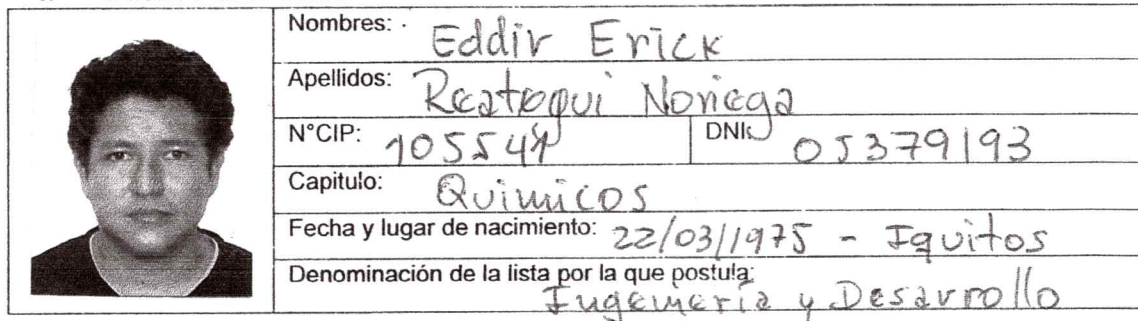 Nombres: Eddir Erick
Apellidos: Reategui Noriega
N°CIP: 105547 DNI: 05379193
Capitulo: Quimicos
Fecha y lugar de nacimiento: 22/03/1975 - Iquitos
Denominación de la lista por la que postula:
Ingenieria y Desarrollo